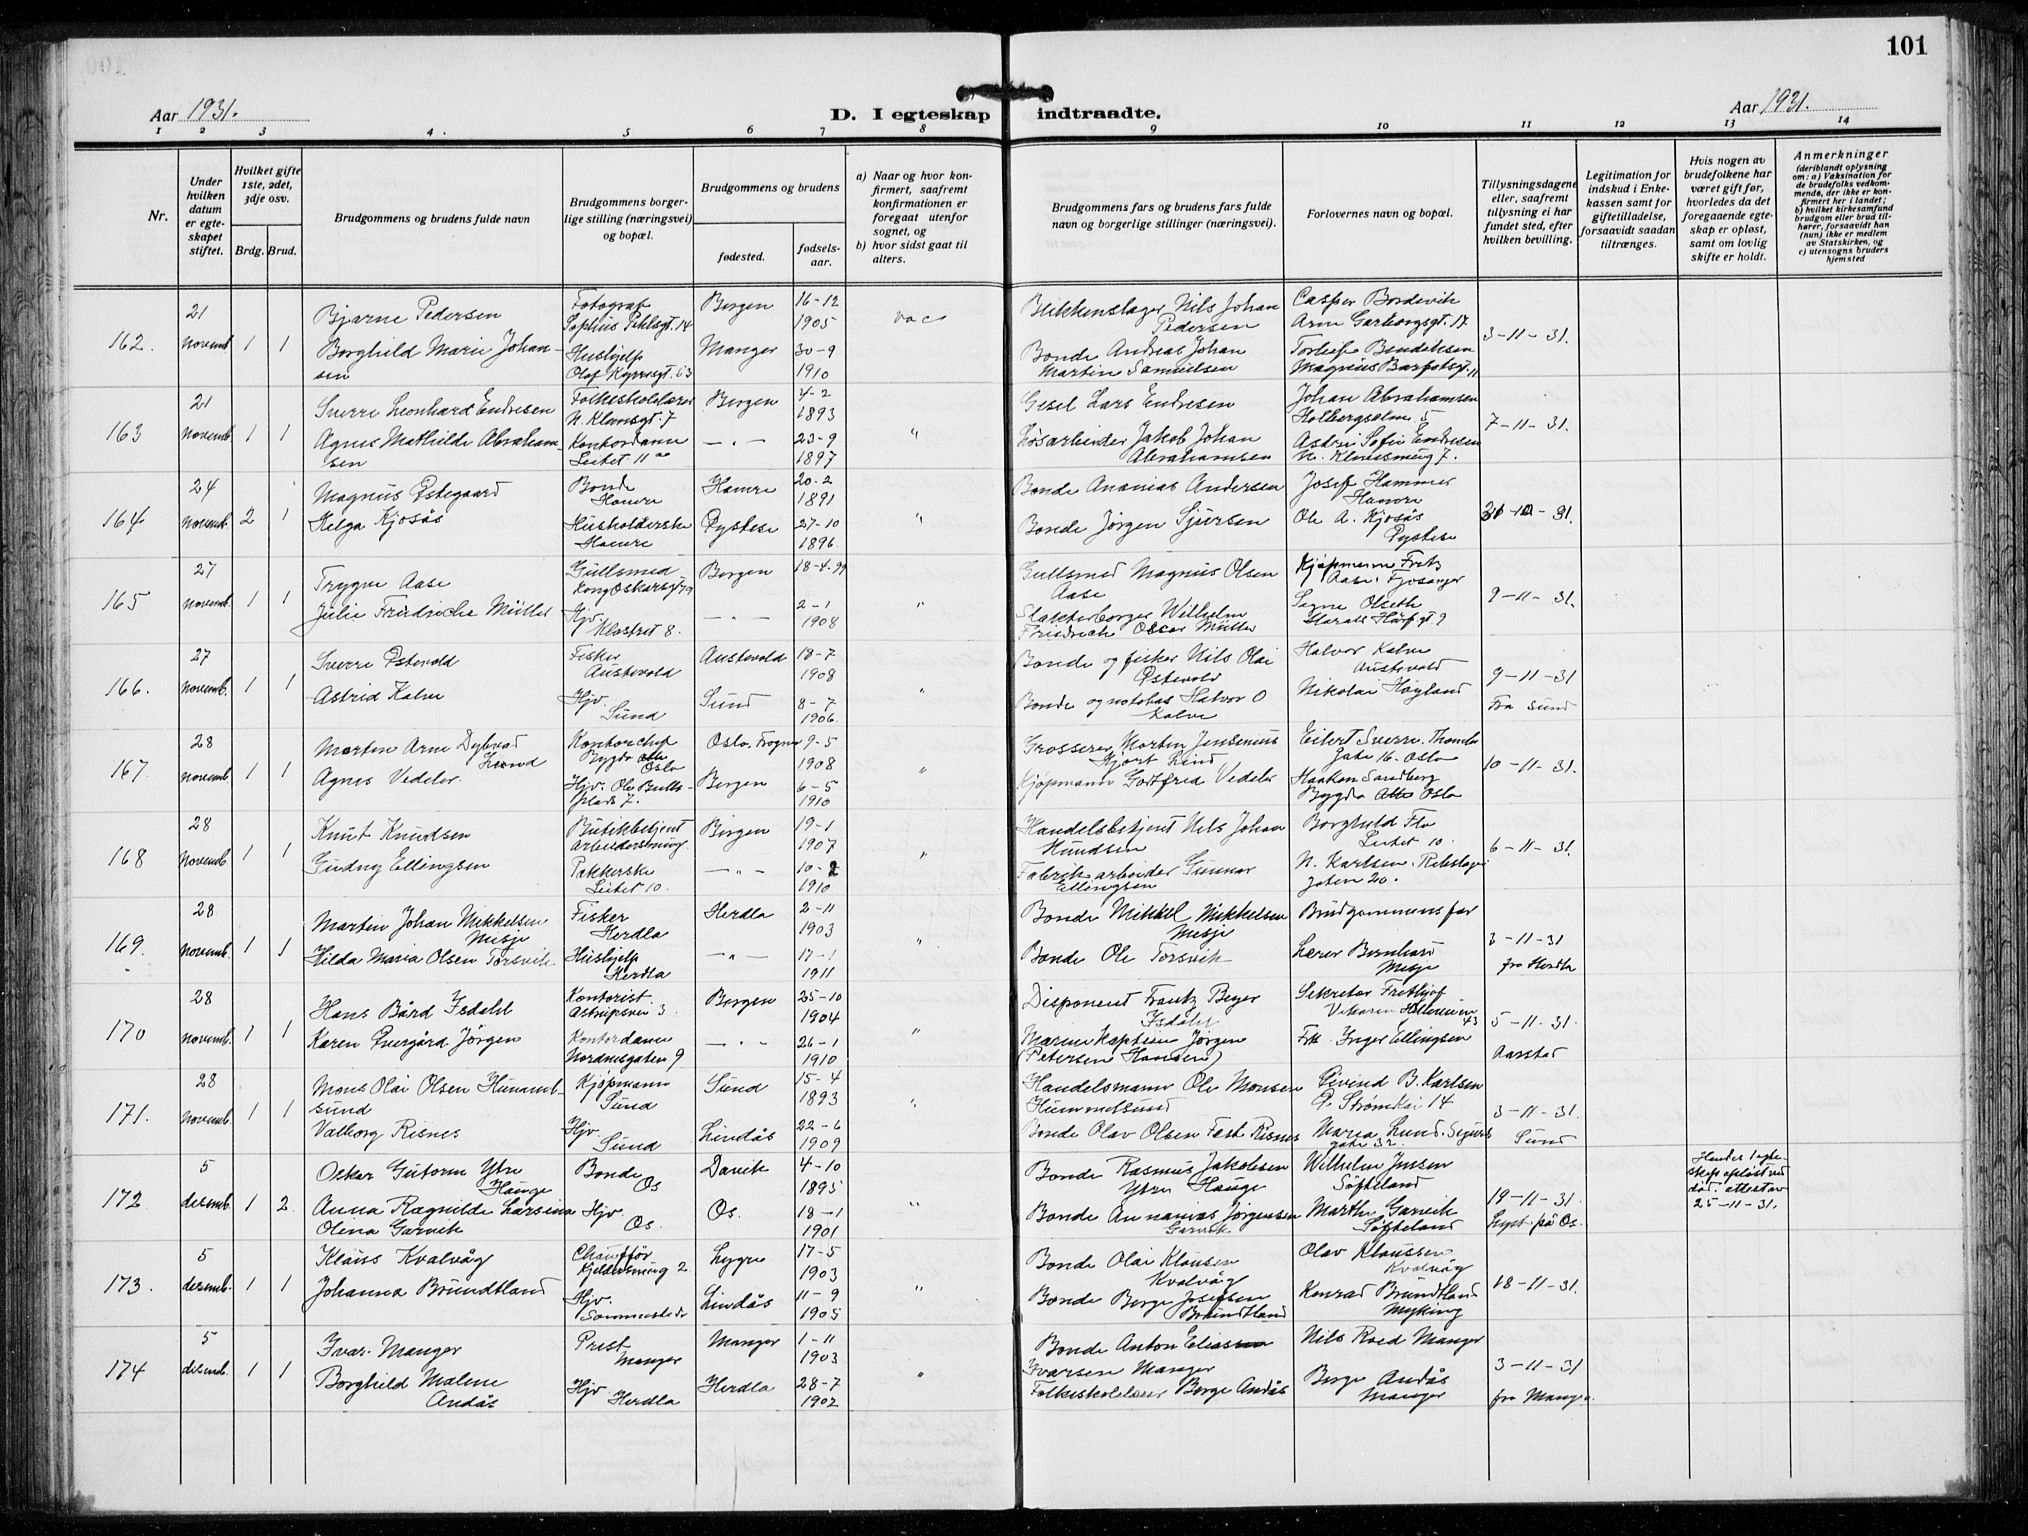 101
Aar 1931.
D. I egteskap indtraadte.
Aar 1931.
1 2 3 4. 5 6 7 8 9 10 11 12 13 14
Nr.
Under hvilken datum er egteskapet stiftet.
Hvilket gifte 1ste, 2det, 3dje osv.
Brdg. Brud.
Brudgommens og brudens fulde navn
Brudgommens borgerlige stilling (næringsvei) og bopæl.
Brudgommens og brudens
fødested.
fødselsaar.
a) Naar og hvor konfirmert, saafremt konfirmationen er foregaat utenfor sognet, og
b) hvor sidst gaat til alters.
Brudgommens fars og brudens fars fulde navn og borgerlige stillinger (næringsvei).
Forlovernes navn og bopæl.
Tillysningsdagene eller, saafremt tillysning ei har fundet sted, efter hvilken bevilling.
Legitimation for indskud i Enkekassen samt for giftetilladelse, forsaavidt saadan tiltrænges.
Hvis nogen av brudefolkene har været gift før, hvorledes da det foregaaende egteskap er opløst, samt om lovlig skifte er holdt.
Anmerkninger
(deriblandt oplysning om: a) Vaksination for de brudefolks vedkommende, der ikke er konfirmert her i landet; b) hvilket kirkesamfund brudgom eller brud tilhører, forsaavidt han (hun) ikke er medlem av Statskirken, og c) utensogns bruders hjemsted
162. 21 novemb 1 1
Bjarne Pedersen
Fotograf
Sophus Pihlsgt. 14
Bergen 16-12 1905
vac
Blikkenslager Nils Johan Pedersen
Casper Bordevik
Arne Garborgsgt. 17
3-11-31.
Borghild Marie Johansen
Hushjelp
Olaf Kyrresgt. 63
Manger 30-9 1910
Bonde Andreas Johan Martin Samuelsen
Torleif Bendiksen
Magnus Barfotsgt. 11
163 21 novemb. 1 1
Sverre Leonhard Endresen
Folkeskolelærer
N. Klausgt. 7
Bergen 4-2 1893
"
Gesel Lars Endresen
Johan Abrahamsen
Holbergsalm. 5
7-11-31.
Agnes Mathilde Abrahamsen
Kontordame
Leitet 11
-"- 23-9 1897
Løsarbeider Jakob Johan Abrahamsen
Astri Sofie Endresen
164 24 novemb. 2 1
Magnus Østegaard
Bonde
Hamre
Hamre 20-2 1891
"
Bonde Ananias Andersen
Josef Hammer
Hamre
Helga Kjosås
Husholderske
Hamre
Øystese 27-10 1896
Bonde Jørgen Sjursen
Ole A. Kjosås
Øystese
165 27 novemb. 1 1
Trygve Aase
Gullsmed
Kong Oskarsgt. 79
Bergen 18-4-99
"
Gullsmed Magnus Olsen Aase
Kjøpmann Fritz Aase. Fjøsanger
9-11-31.
Julie Friedriche Müller
Hjv.
Klostret 8.
-"- 2-1 1908
Slakterborger Wilhelm Friedrich Oscar Müller
Signe Olseth
Harald Hårf.gt 9
166. 27 novemb. 1 1
Sverre Østevold
Fisker
Austevold
Austevold 18-7 1908
"
Bonde og fisker Nils Olai Østevold
Halvor Kalve
Austevold
9-11-31
Fra Sund
Astrid Kalve
Hjv.
Sund
Sund 8-7 1906.
Bonde og notebas Halvor O Kalve
Nikolai Høyland
167. 28 novemb 1 1
Morten Arne Dybwad Lund
Kontorchef
Bygdø alle
Oslo
Oslo, Frogner 9-5 1908
"
Grosserer Morten Jensenius Hjort Lund
Eilert Sverre. Thomles
Gate 16. Oslo
10-11-31.
Agnes Vedeler
Hjv. Ole Bulls
plads 7.
Bergen 6-5 1910
Kjøpmann Godtfred Vedeler
Haakon Sandberg
Bygdø Alle Oslo
168 28 novemb. 1 1
Knut Knudsen
Butikkbetjent
Bergen 19-1 1907
"
Handelsbetjent Nils Johan
Borghild Flo
Leitet 10.
6-11-31.
Gudny Ellingsen
Pakkerske
Leitet 10.
-"- 10-2 1910
Fabrikarbeider Gunnar Ellingsen
N. Karlsen. Rebslager
gaten 20.
169. 28 novemb. 1 1
Martin Johan Mikkelsen Misje
Fisker
Herdla
Herdla 2-11 1903
"
Bonde Mikkel Mikkelsen Misje
Brudgommens far
3-11-31
fra Herdla
Hilda Maria Olsen Torsvik
Hushjelp
Herdla
-"- 17-1 1911
Bonde Ole Torsvik
Lærer Bernhard Misje
170 28 novemb. 1 1
Hans Bård Isdahl
Kontorist
Astrupsvei 3
Bergen 25-10 1904
"
Disponent Frantz Beyer Isdahl
Sekretær Fritjof
43
5-11-31.
Aarstad
Karen Overgård Jörgen
Kontordame
Nordnesgaten 9
-"- 26-1 1910
Marinekaptein Jörgen
(Petersen Hansen)
Frk. Inger Ellingsen
171. 28 novemb. 1 1
Mons Olai Olsen Hummelsund
Kjøpmann
Sund
Sund 15-4 1893
"
Handelsmann Ole Monsen Hummelsund
Øivind B. Karlsen
C. Strømkai 14
3-11-31.
Sund
Valborg Risnes
Hjv.
Sund
Lindås 22-6 1909
Bonde Olav Olsen Feste Risnes
Maria Lund. Sigurds
gate 32.
172 5 desemb. 1 2
Oskar Gutorm Ytre Hauge
Bonde
Os
Davik 4-10 1895
"
Bonde Rasmus Jakobsen Ytre Hauge
Wilhelm Jensen
Søfteland
19-11-31.
Lyst på Os.
Hendes 1 egteskap opløst ved død. attest av 25-11-31.
Anna Ragnilde Larsina Olina Garvik
Hjv.
Os.
Os. 18-1 1901
Bonde Annanias Jørgensen Garvik
Marthe Garvik
Søfteland
173. 5 desemb. 1 1
Klaus Kvalvåg
Chauffør
Kjellersmug 2
Lygre 17-5 1903
"
Bonde Olai Klausen Kvalvåg
Olav Klaussen
Kvalvåg
18-11-31.
Johanna Brundtland
Hjv.
Lindås 11-9 1905
Bonde Berge Josefsen Brundtland
Konrad Brundtland
Myking
174 5 desemb. 1 1
Ivar Manger
Prest
Manger
Manger 1-11 1903
"
Bonde Anton Eliassen Ivarsen Manger
Nils Roed Manger
3-11-31
fra Manger
Borghild Malene Andås
Hjv.
Herdla
Herdla 28-7 1902
Folkeskolelærer Berge Andås
Berge Andås
Manger